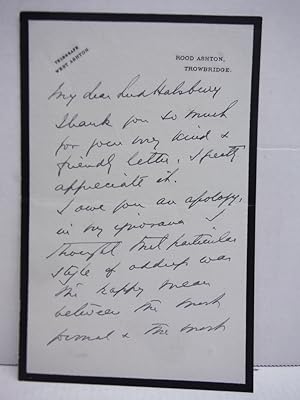 TELEGRAPH
WEST ASHTON.
ROOD ASHTON,
TROWBRIDGE.
My dear Lord Halsbury
Thank you so much
for your very kind &
friendly letter, I greatly
appreciate it.
I owe you an apology,
in my ignorance I
thought that particular
style of address was
the happy mean
between the most
formal & the most